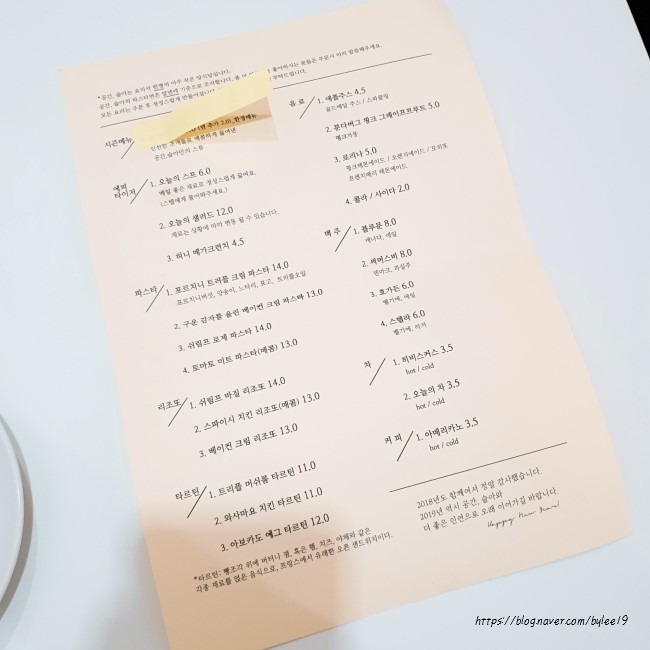 *공간, 숲아는 요리사 한명의 아주 작은 양식당입니다.
좋아하시는 분들은 주문시 미리 말씀해주세요.
공간, 숲아의 파스타면은 알덴테 기준으로 조리합니다.
모든 요리는 주문 후 정성스럽게 만들어집니다.
부탁드립니다.
시즌메뉴
추가 2.0), 한정메뉴
신선한 조개들로 매콤하게 끓여낸
공간,숲아만의 스튜
에피타이저
1. 오늘의 스프 6.0
매일 좋은 재료로 정성스럽게 끓여요.
(스탭에게 물어봐주세요.)
2. 오늘의 샐러드 12.0
재료는 상황에 따라 변동 될 수 있습니다.
3. 허니 메가크런치 4.5
파스타
1. 포르치니 트러플 크림 파스타 14.0
포르치니버섯, 양송이, 느타리, 표고, 트러플오일
2. 구운 감자를 올린 베이컨 크림 파스타 13.0
3. 쉬림프 로제 파스타 14.0
4. 토마토 미트 파스타(매콤) 13.0
리조또
1. 쉬림프 바질 리조또 14.0
2. 스파이시 치킨 리조또(매콤) 13.0
3. 베이컨 크림 리조또 13.0
타르틴
1. 트리플 머쉬룸 타르틴 11.0
2. 와사마요 치킨 타르틴 11.0
3. 아보카도 에그 타르틴 12.0
*타르틴: 빵조각 위에 버터나 잼, 혹은 햄, 치즈, 야채와 같은
각종 재료를 얹은 음식으로, 프랑스에서 유래한 오픈 샌드위치이다.
음료
1. 애플주스 4.5
골드메달 주스 / 스파클링
2. 분다버그 핑크 그레이프프루트 5.0
핑크자몽
3. 로리나 5.0
핑크레몬에이드 / 오렌지에이드 / 모히또
프렌치베리 레몬에이드
4. 콜라 / 사이다 2.0
맥주
1. 블루문 8.0
캐나다, 에일
2. 써머스비 8.0
덴마크, 과실주
3. 호가든 6.0
벨기에, 에일
4. 스텔라 6.0
벨기에, 라거
차
1. 히비스커스 3.5
hot / cold
2. 오늘의 차 3.5
hot / cold
커피
1. 아메리카노 3.5
hot / cold
2018년도 함께여서 정말 감사했습니다.
2019년 역시 공간, 숲아와
더 좋은 인연으로 오래 이어가길 바랍니다.
Happy New Year!
https://blog.naver.com/bylee19